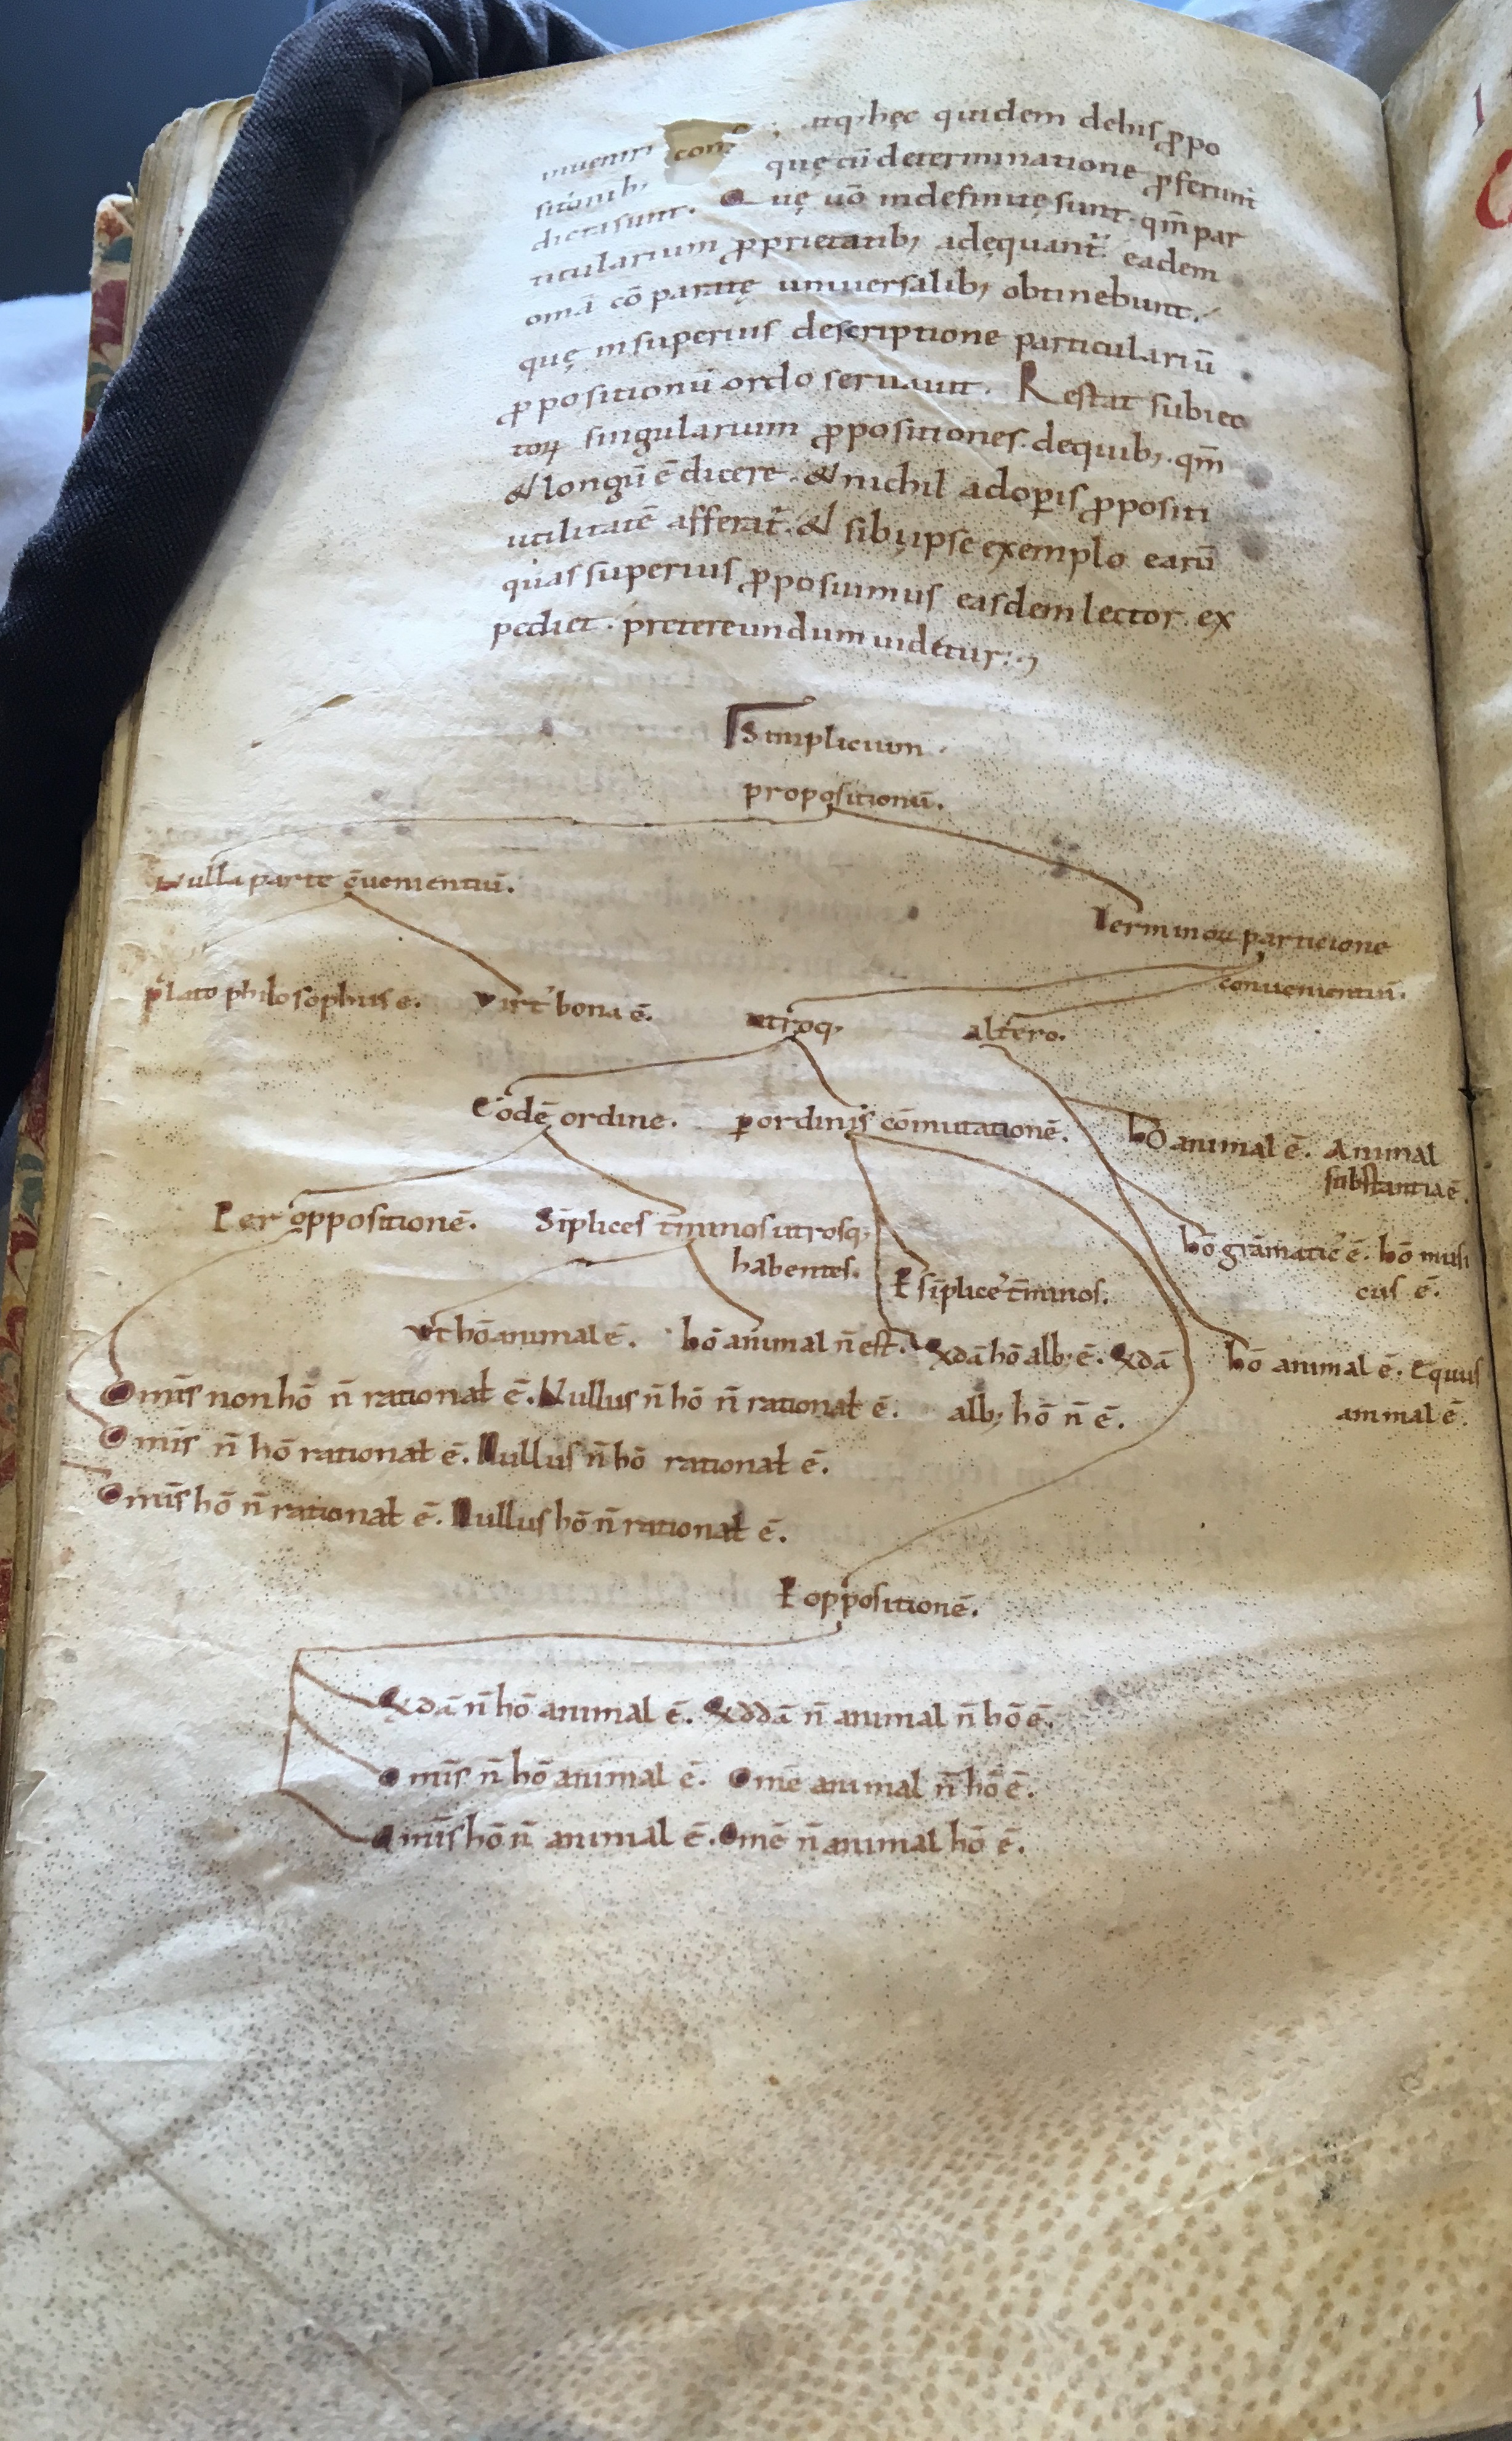 inueniri con atq; hęc quidem dehis ꝓpo
sitionib; quę cū determinatione ꝓferunt
dicta sunt. Quę uō indefinitę sunt. qm̄ par
ticularium ꝓprietatib; adęquant̄. eadem
om̄a cōparatę uniuersalib; obtinebunt.
quę insuperius descriptione particulariū
ꝓpositionū ordo seruauit. Restat subiec
toꝝ singularium ꝓpositiones. dequib; qm̄
& longū ē dicere. & nichil adoꝑis ꝓpositi
utilitatē afferat̄. & sibi ipse exemplo earū
quas superius ꝓposuimus easdem lector ex
pediet. pretereundum uidetur:,
Simplicium
propositionū.
Nulla parte c̄uenientiū.
Terminoꝝ participatione
conuenientiū.
Plato philosophus ē. Virt' bona ē. utroq; altero.
Eodē ordine. ꝑ ordinis cōmutationē.
hō animal ē. Animal
substantia ē.
Per oppositionē. Sīplices t̄minos utrosq;
habentes.
hō grāmatic' ē. hō musi
cus ē.
P sīplices t̄minos.
Vt hō animal ē. hō animal n̄ est. Qdā hō alb; ē. Qdā
alb; hō n̄ ē.
hō animal ē. Equus
animal ē.
Omīs non hō n̄ rational ē. Nullus n̄ hō n̄ rational ē.
Omīs n̄ hō rational ē. Nullus n̄ hō rational ē.
Omīs hō n̄ rational ē. Nullus hō n̄ rational ē.
P oppositionē.
Qdā n̄ hō animal ē. Qddā n̄ animal n̄ hō ē.
Omīs n̄ hō animal ē. Omē animal n̄ hō ē.
Omīs hō n̄ animal ē. Omē n̄ animal hō ē.